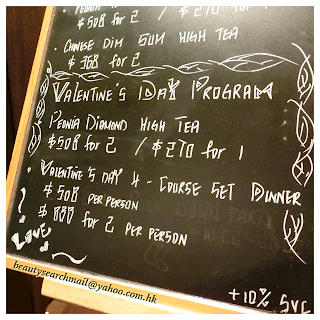 • Peonia
$508 for 2 / $270 for
• Chinese Dim Sum High Tea
$368 for 2
Valentine's Day Program
Peonia Diamond High Tea
$508 for 2 / $270 for 1
• Valentine's day 4-Course Set Dinner
$508 per person
$888 for 2 per person
Love
+10% SVC
beautysearchmail@yahoo.com.hk